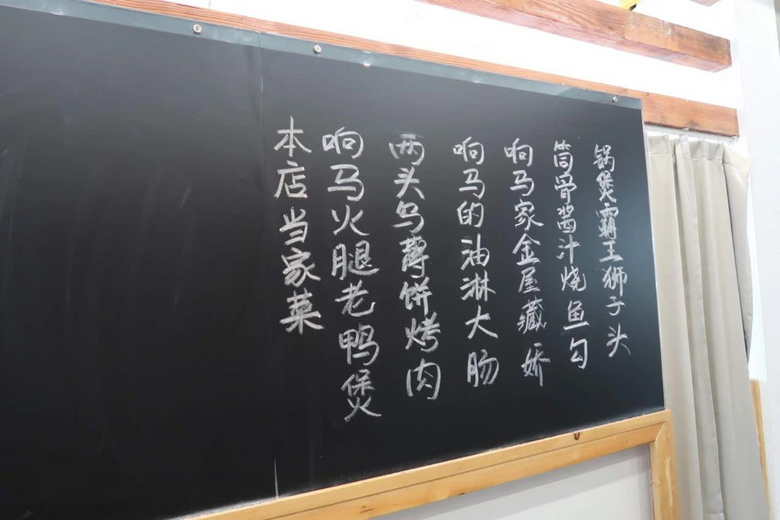 本店当家菜
响马火腿老鸭煲
两头乌薄饼烤肉
响马的油淋大肠
响马家金屋藏娇
筒骨酱汁烧鱼勾
锅煲霸王狮子头